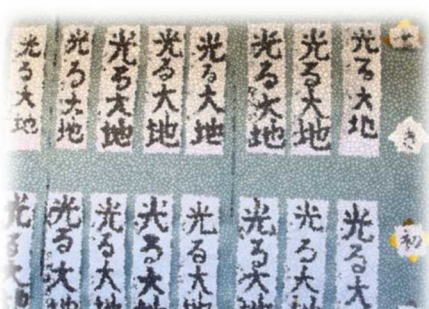 き
初
光る大地
光る大地
光る大地
光る大地
光る大地
光る大地
光る大地
光る大地
光る大
光る大地
光る大地
光る大地
光る大地
光る大地
光る大地
光る大